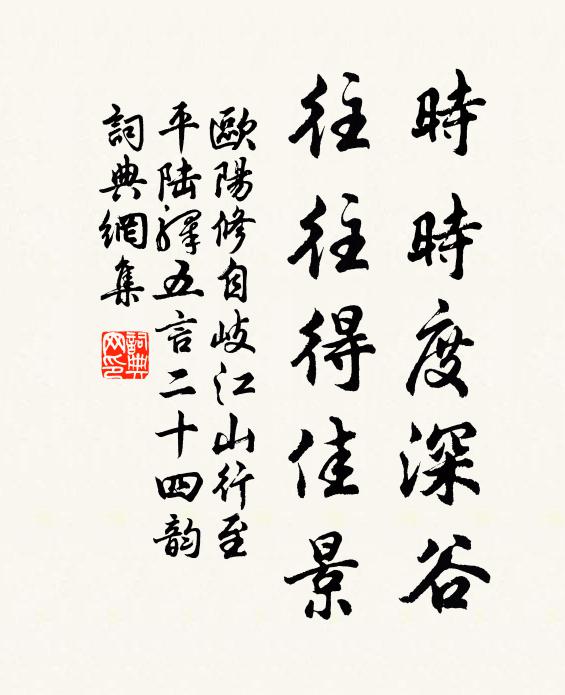 時時度深谷
往往得佳景
歐陽修自岐江山行至
平陸驛五言二十四韵
詞典網集
詞典網印